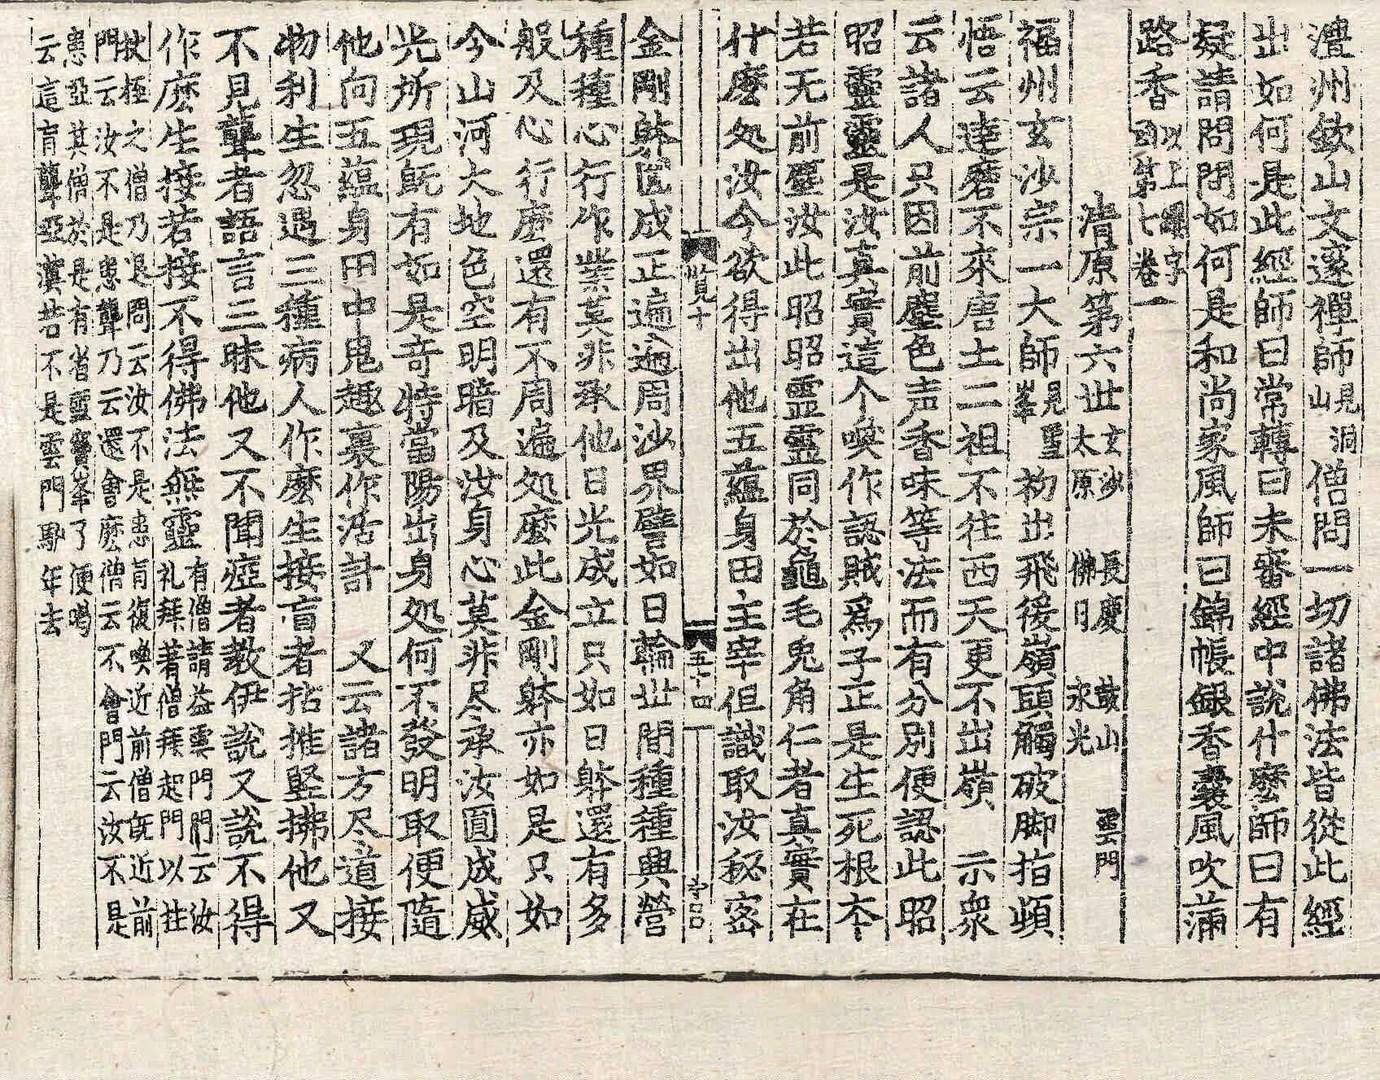 澧州欽山文邃禪師見洞山僧問一切諸佛法皆從此經
出如何是此經師曰常轉曰未審經中說什麽師曰有
疑請問問如何是和尚家風師曰錦帳銀香囊風吹滿
路香以上頌字函第七卷一
清原第六世玄沙 長慶 鼓山 雲門 太原 佛日 永光
福州玄沙宗一大師見雪峯初出飛後嶺頭觸破脚指頓
悟云達磨不來唐土二祖不往西天更不出嶺 示衆
云諸人只因前塵色声香味等法而有分別便認此昭
昭靈靈是汝真實這个喚作認賊爲子正是生死根夲
若无前塵汝此昭昭靈靈同於龜毛兎角仁者真實在
什麽処汝今欲得出他五蘊身田主宰但識取汝秘密
覧十 五十四 李呂
金剛躰匡成正遍遍周沙界譬如日輪世間種種興營
種種心行作業莫非承他日光成立只如日躰還有多
般及心行麽還有不周遍処麽此金剛躰亦如是只如
今山河大地色空明暗及汝身心莫非尽承汝圓成威
光所現旣有如是奇特當陽出身処何不發明取便隨
他向五蘊身田中鬼趣裏作活計 又云諸方尽道接
物利生忽遇三種病人作麽生接盲者拈搥竪拂他又
不見聾者語言三昧他又不聞瘂者敎伊說又說不得
作麽生接若接不得佛法無靈有僧請益雲門門云汝
礼拜著僧拜起門以拄
杖極之僧乃退問云汝不是患盲復喚近前僧旣近前
門云汝不是患聾乃云還會麽僧云不會門云汝不是
患亞其僧於是有省雪竇舉了便喝
云這盲聾亞漢若不是雲門馿年去